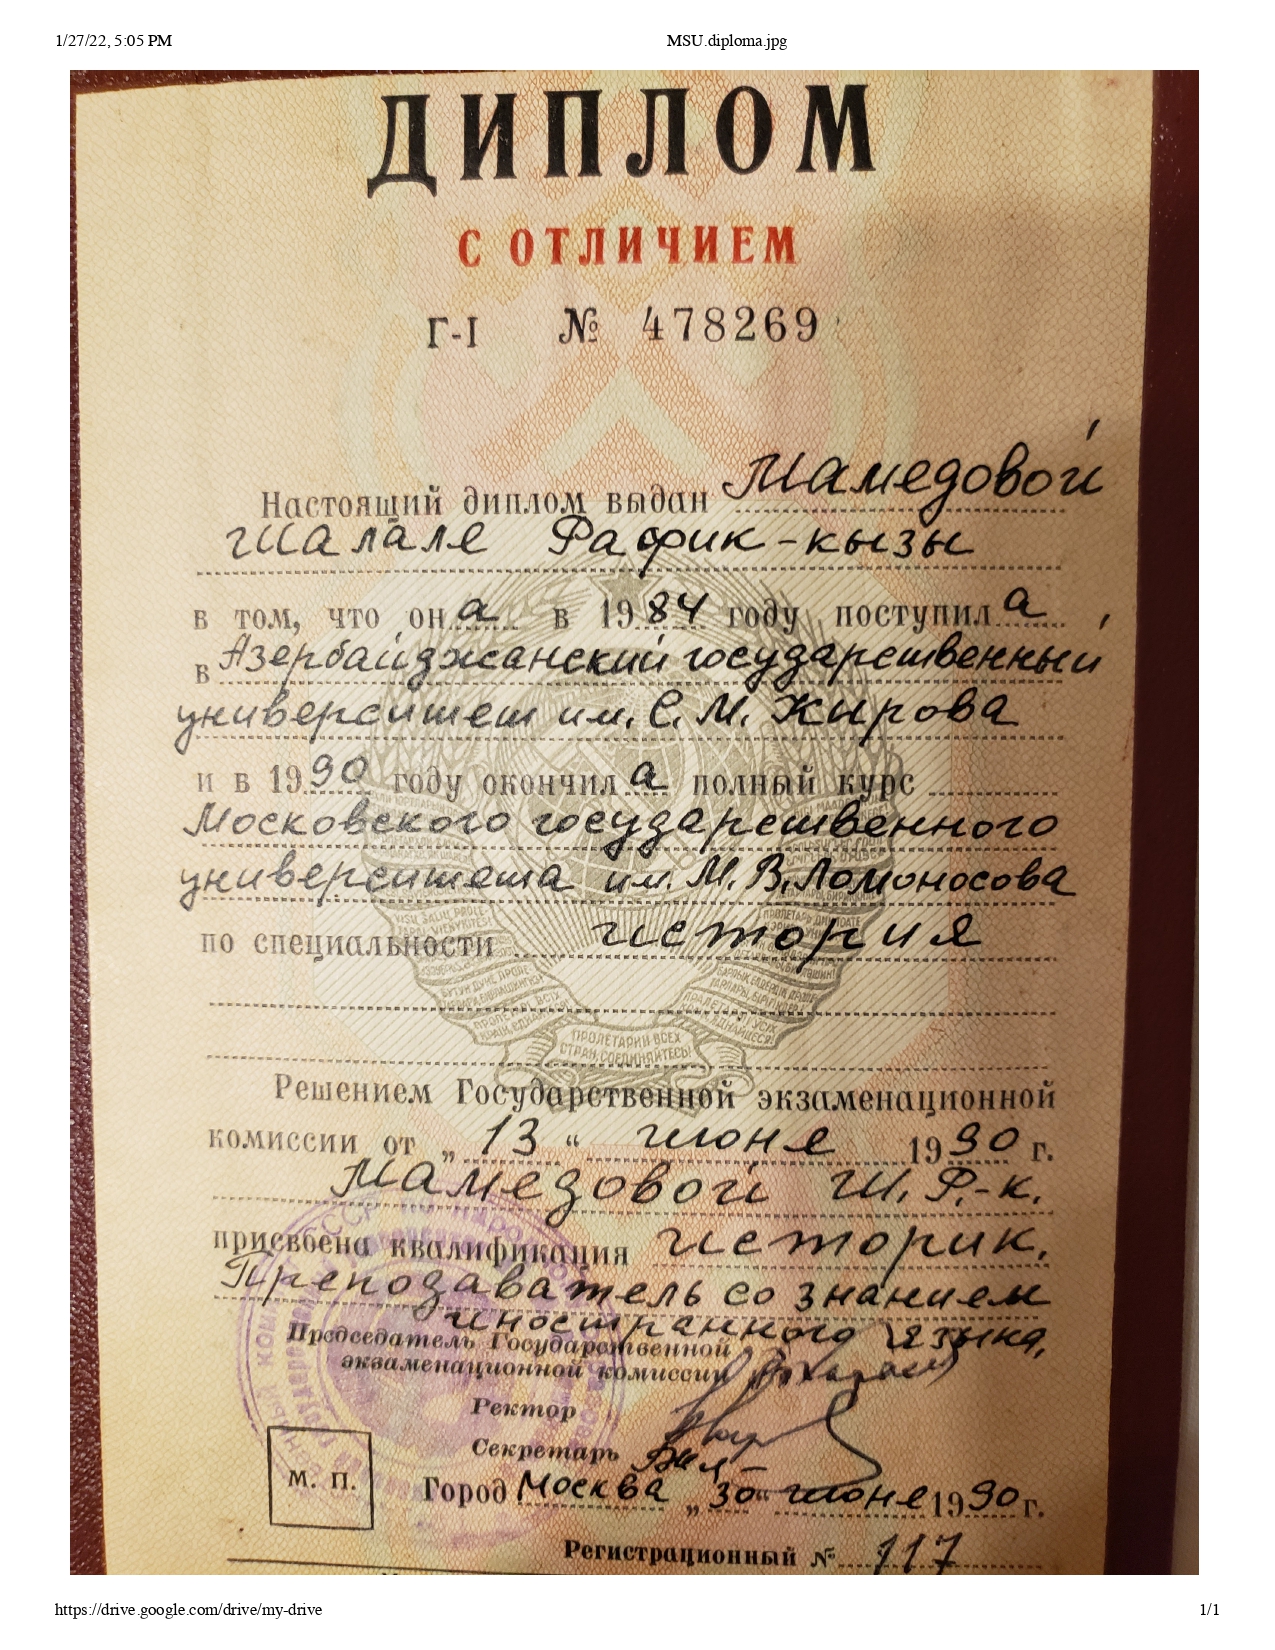 1/27/22, 5:05 PM
MSU.diploma.jpg
ДИПЛОМ
С ОТЛИЧИЕМ
Г-I № 478269
Настоящий диплом выдан Мамедовой
Шалале Рафик-кызы
в том, что он а в 1984 году поступил а
в Азербайджанский государственный
университет им. С. М. Кирова
и в 1990 году окончил а полный курс
Московского государственного
университета им. М. В. Ломоносова
по специальности история
ПРОЛЕТАРИИ ВСЕХ
СТРАН, СОЕДИНЯЙТЕСЬ!
Решением Государственной экзаменационной
комиссии от „ 13 “ июня 1990 г.
Мамедовой Ш. Р.-к.
присвоена квалификация историк.
Преподаватель со знанием
иностранного языка.
Председатель Государственной
экзаменационной комиссии
Ректор
Секретарь
М. П.
Город Москва „ 30 “ июня 1990 г.
Регистрационный № 117
https://drive.google.com/drive/my-drive
1/1